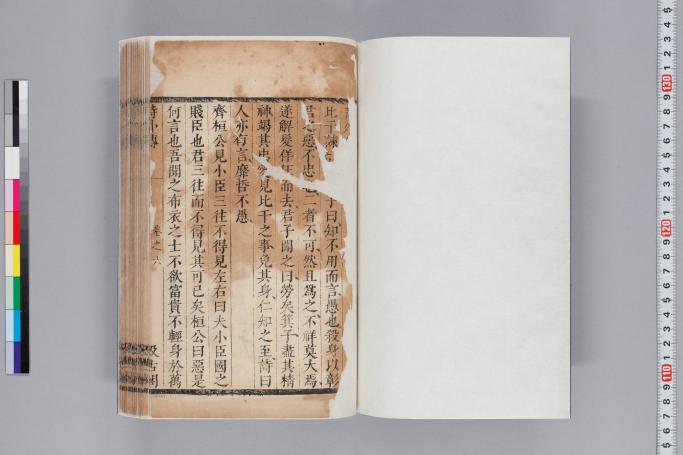 比干諫子曰知不用而言愚也殺身以彰
君之惡不忠也二者不可然且爲之不祥莫大焉
遂解髮佯狂而去君子聞之曰勞矣箕子盡其精
神竭其忠愛見比干之事免其身仁知之至詩曰
人亦有言靡哲不愚
齊桓公見小臣三往不得見左右曰夫小臣國之
賤臣也君三往而不得見其可已矣桓公曰惡是
何言也吾聞之布衣之士不欲富貴不輕身於萬
詩外傳 卷之六 汲古閣
5 4 3 2 1 130 9 8 7 6 5 4 3 2 1 120 9 8 7 6 5 4 3 2 1 110 9 8 7 6 5